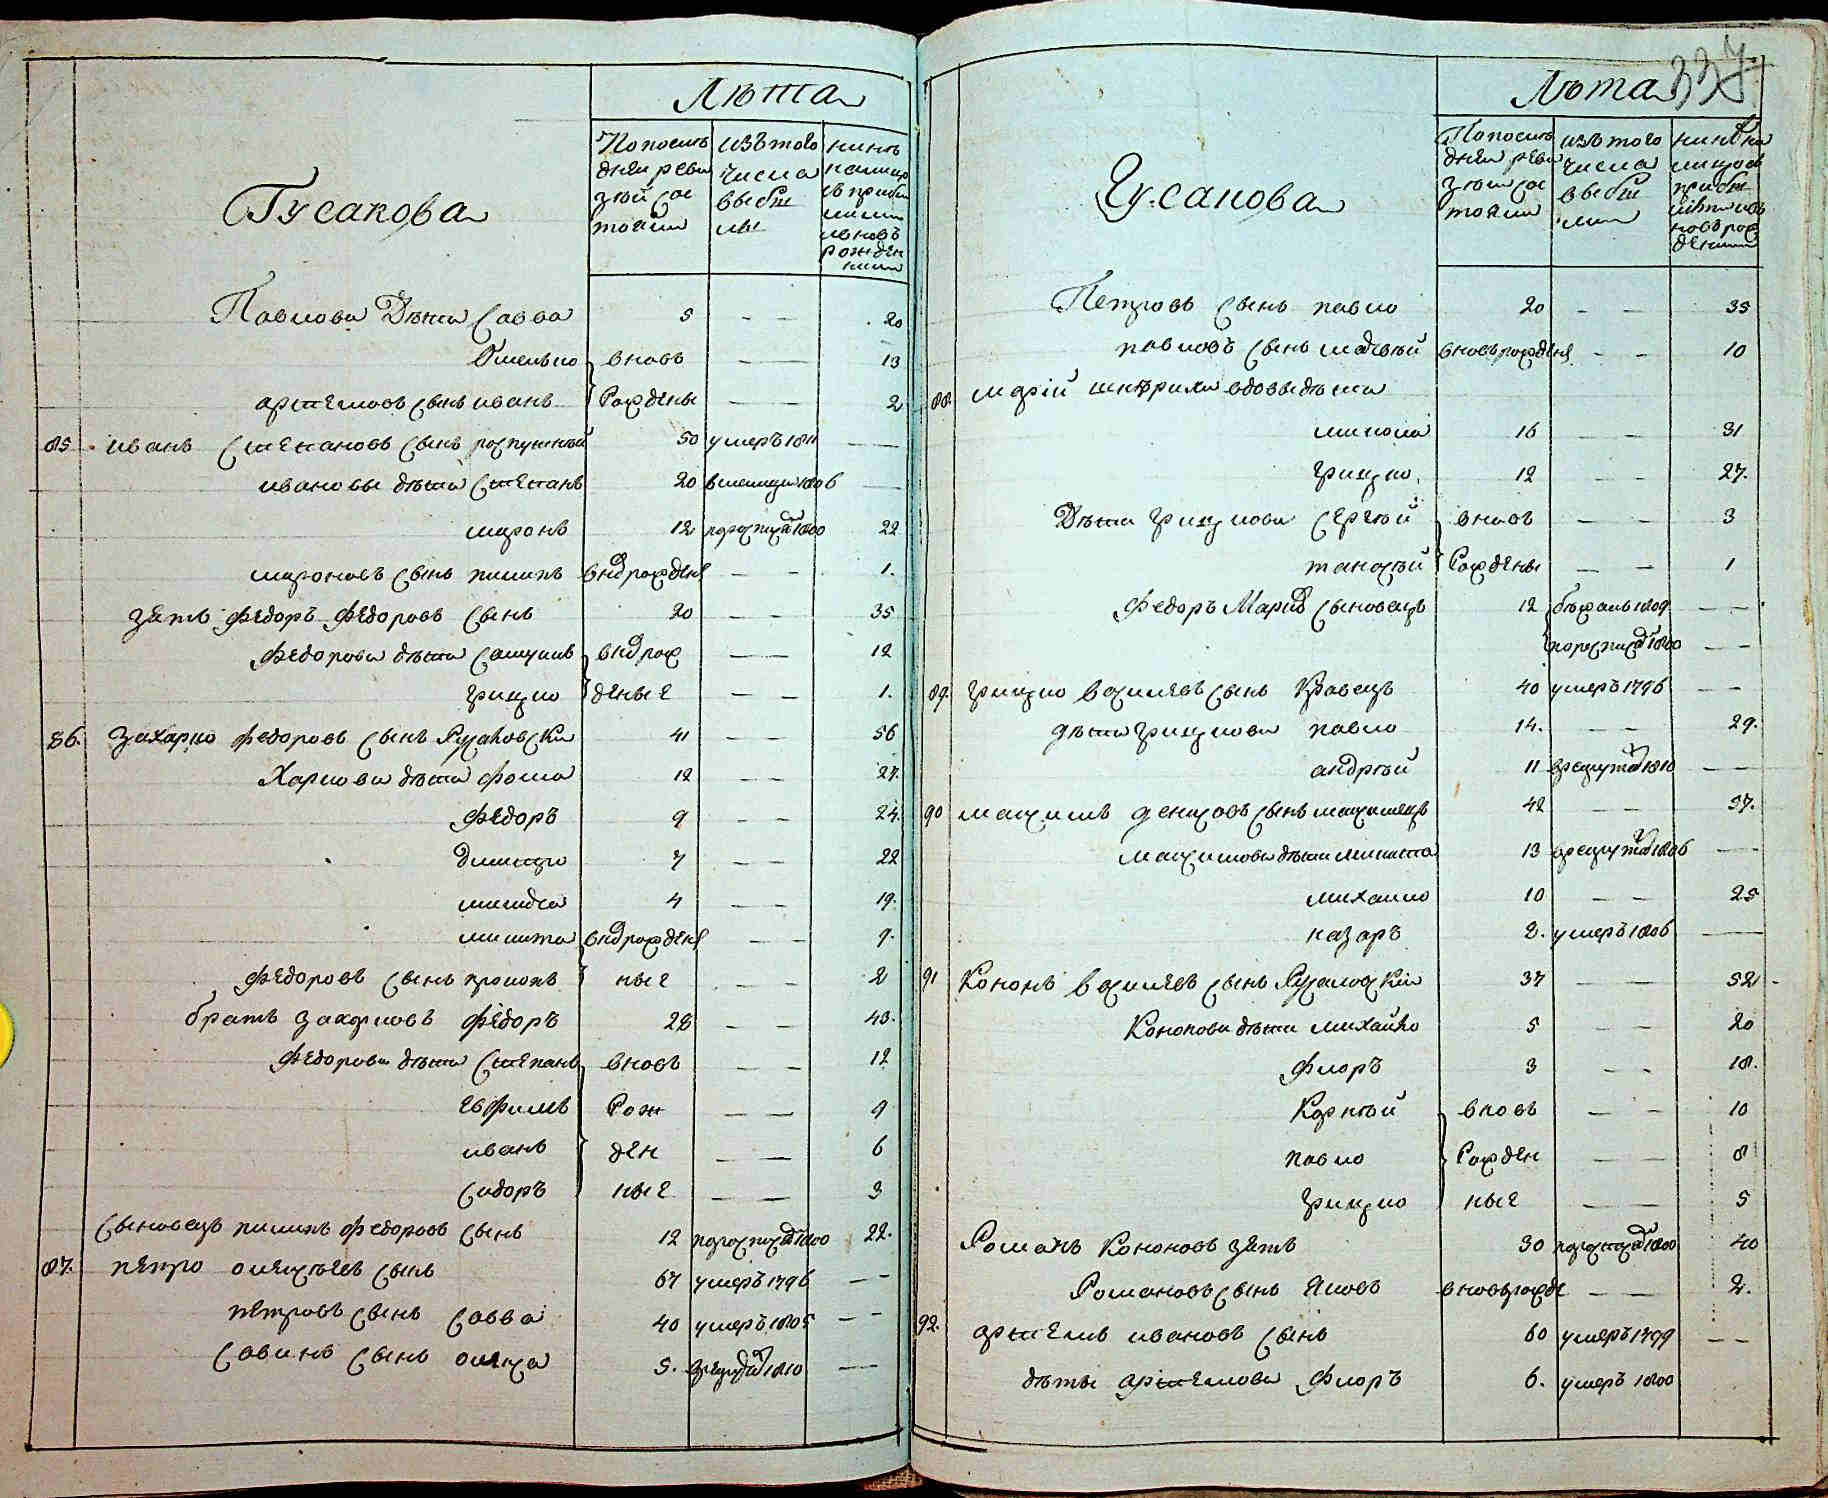 Лѣта
Гусакова
По послѣ
дней реви
зіи сос
тояли
изъ того
числа
выбы
лы
нинѣ
налицо
съ прибы
лими
и вновь
рожден
ними
Павлови Дѣти Савва 5 — — 20
Омелько вновь — — 13
артемовъ сынъ иванъ Рожdены — — 2
85. иванъ Степановъ сынъ 50 умеръ 1811 —
ивановы дѣти Степанъ 20 1806 —
миронъ 12 1800 22
мироновъ сынъ пилипъ — — 1.
зять Федоръ Федоровъ сынъ 20 — — 35
Федорови дѣти Самуилъ внов рож — — 12
грицко деные — — 1.
86. Захарко Федоровъ сынъ 41 — — 56
Харкови дѣти Фома 12 — — 27.
Федоръ 9 — — 24.
дмитро 7 — — 22
4 — — 19.
микита — — 9.
Федоровъ сынъ прокопъ ные — — 2
братъ захарковъ Федоръ 28 — — 43.
Федорови дѣти Степанъ вновь — — 12
Евфимъ Рож — — 9
иванъ ден — — 6
Сидоръ ные — — 3
Сыновецъ пилипъ Федоровъ сынъ 12 1800 22.
87. петро олексѣевъ сынъ 67 умеръ 1796 — —
петровъ сынъ Савва 40 умеръ 1805 — —
Савинъ сынъ олекса 5. 1810 —
337
Лѣта
Гусакова
По послѣ
дней реви
зіи сос
тояли
изъ того
числа
выбы
ли
нинѣ на
лицо съ
прибы
лими и
новорож
деними
Петровъ сынъ павло 20 — — 35
павловъ сынъ матвѣй вновьрожdенъ — — 10
88. марiи вдовы дѣти
микола 16 — — 31
грицко. 12 — — 27.
Дѣти грицкови Сергѣй вновь — — 3
танасѣй Рождены — — 1
Федоръ Маріи сыновецъ 12 бѣжалъ 1809 — —
1800 — —
89. грицко василевъ сынъ Кравецъ 40 умеръ 1796 — —
дѣти грицкови павло 14. — — 29.
андрѣй 11 врекруты 1810 — —
90 максимъ денисовъ сынъ 42 — — 57.
максимови дѣти микита 13 врекруты 1806 — —
михайло 10 — — 25
назаръ 2. умеръ 1806 —
91 Кононъ василевъ сынъ 37 — — 52
Кононови дѣти михайло 5 — — 20
Флоръ 3 — — 18.
Корнѣй вновь — — 10
павло Рожден — — 8
грицко ные — — 5
Романъ Кононовъ зять 30 1800 40
Романовъ сынъ Яковъ вновьрожде — — 2.
92. артемъ ивановъ сынъ 60 умеръ 1799 — —
дѣты артемови Флоръ 6. умеръ 1800